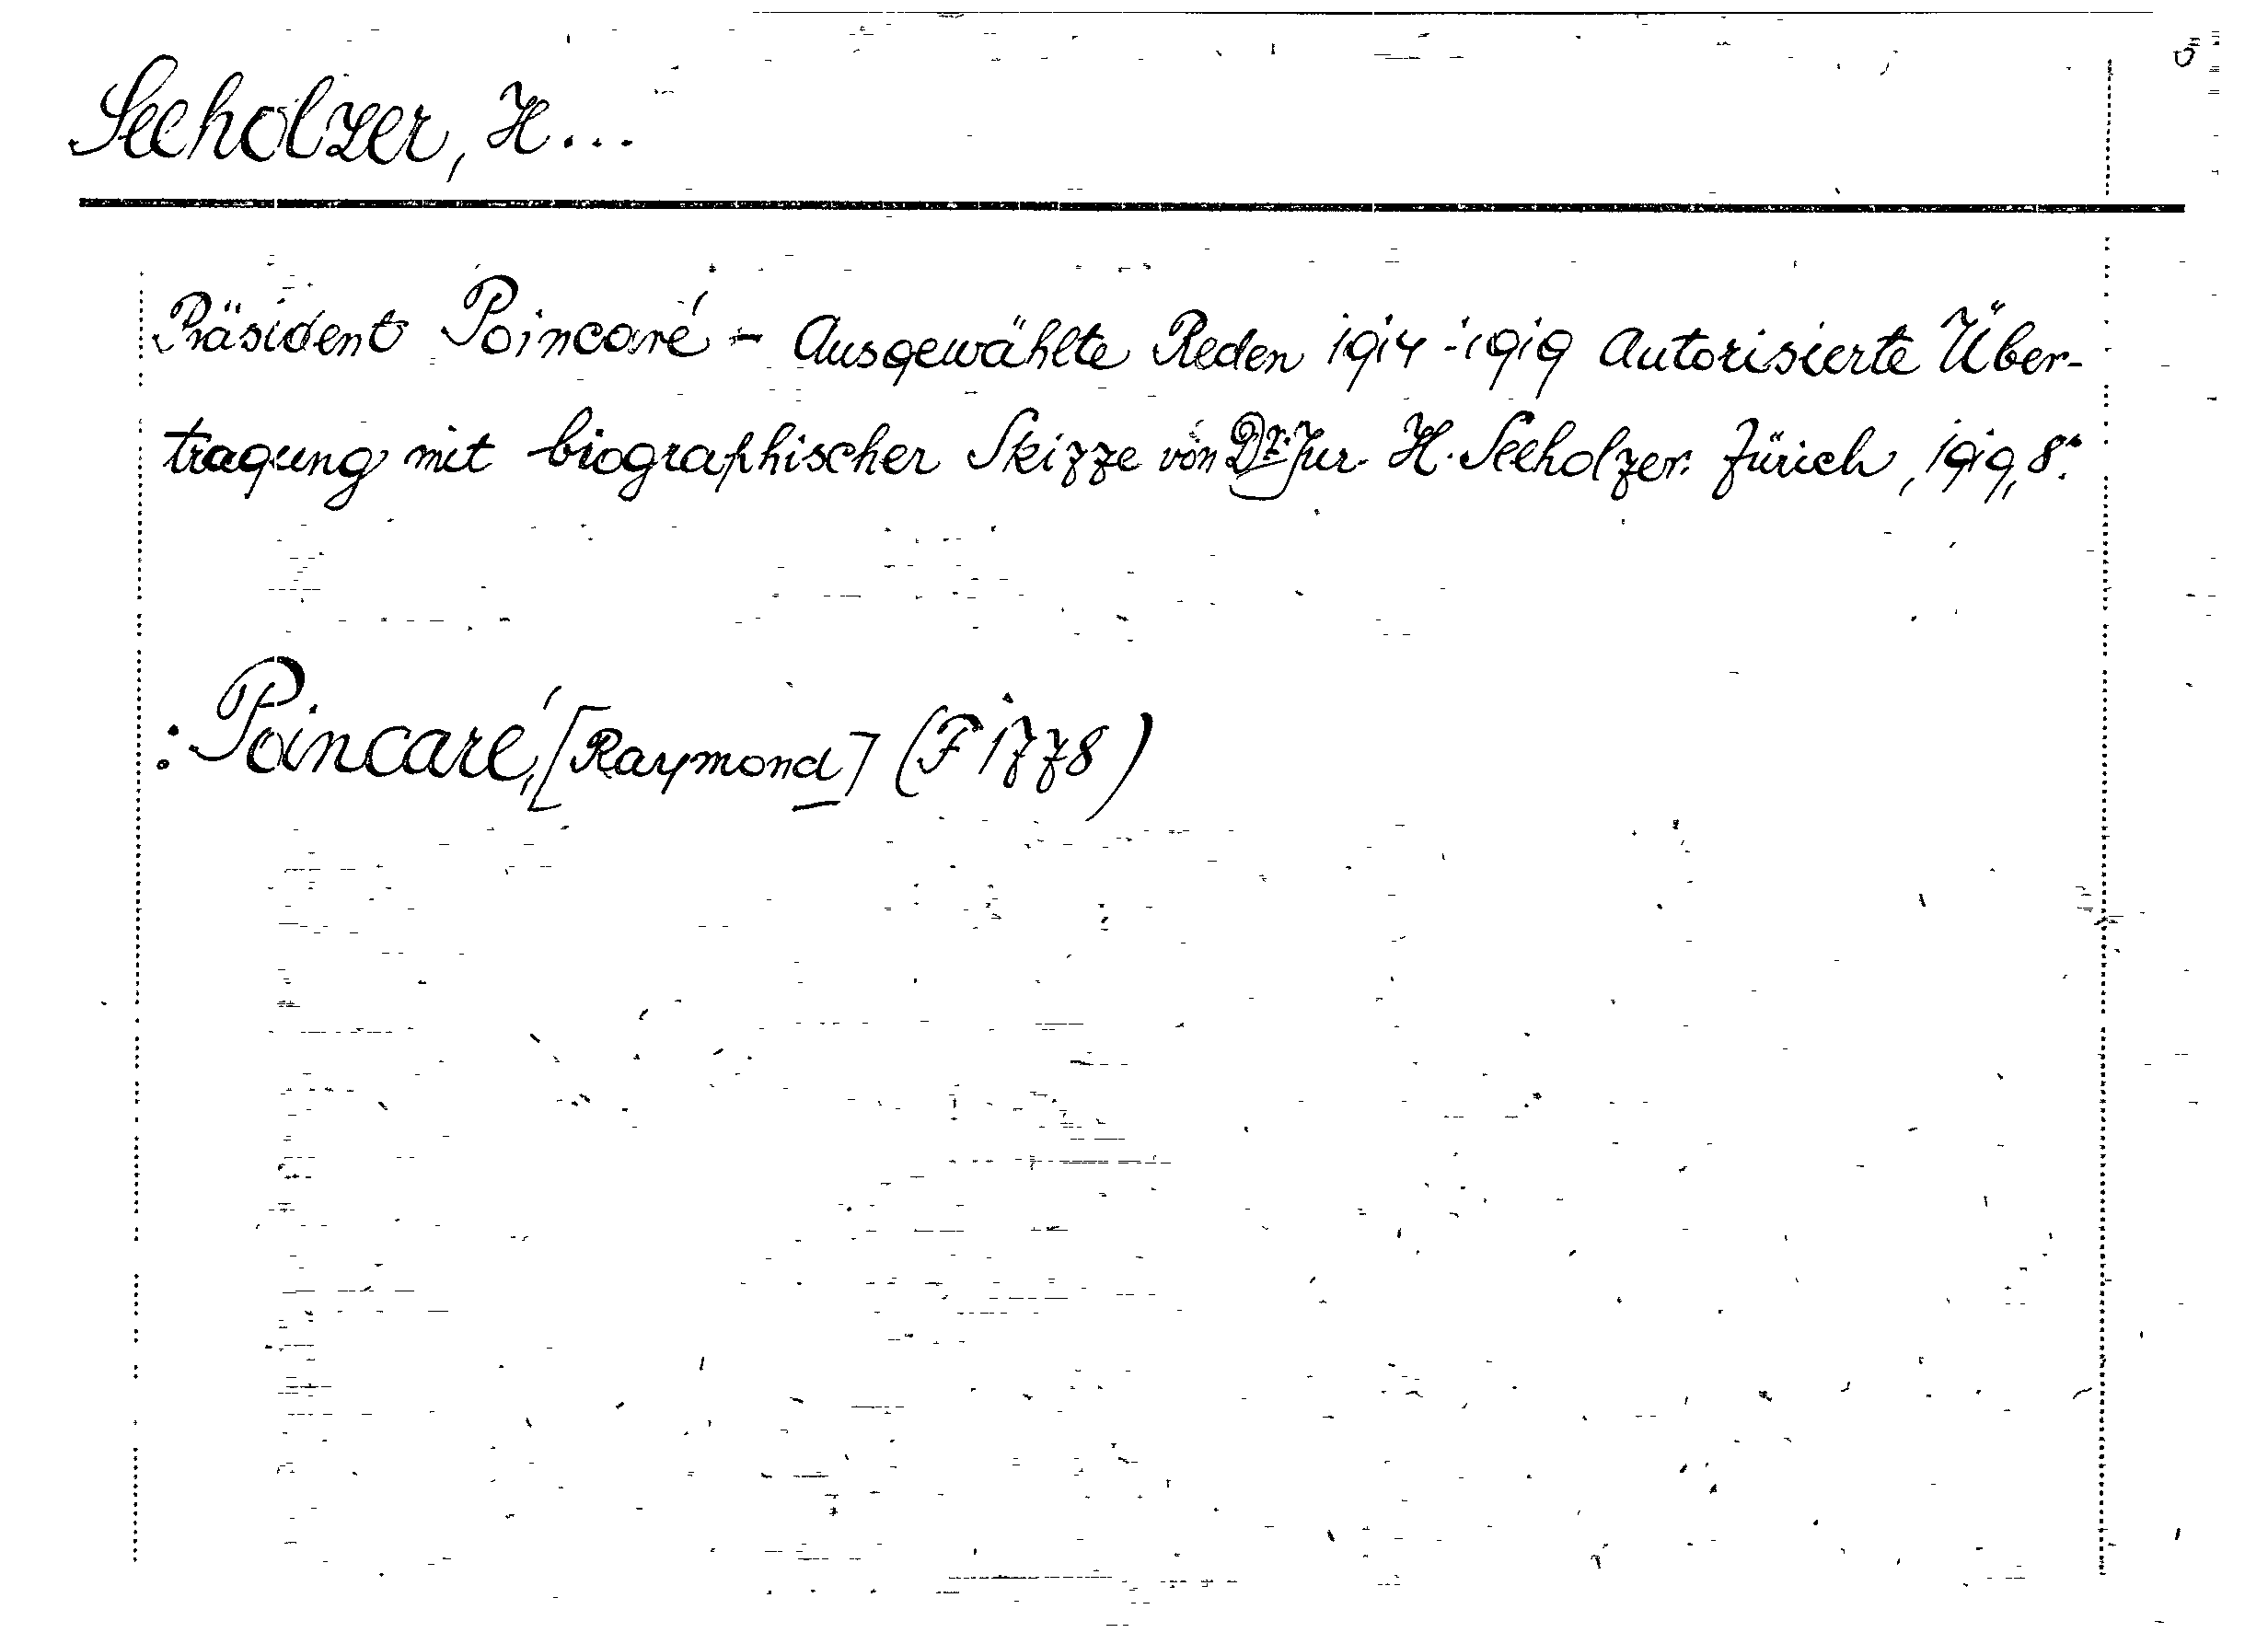 Seeholzer, H...
Präsident Poincaré - Ausgewählte Reden 1914-1919 Autorisierte Über-
tragung mit biographischer Skizze von Dr. Jur. H. Seeholzer. Zürich, 1919, 8°.
: Poincaré, [Raymond] (F 1778)